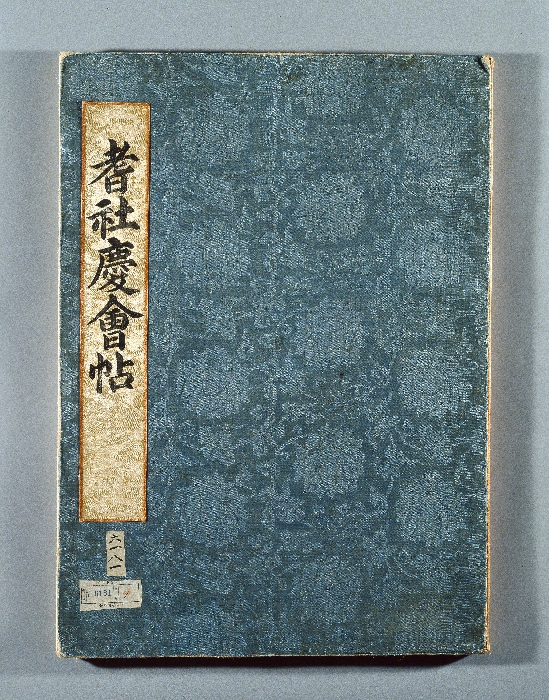 耆社慶會帖
六一八一
6181